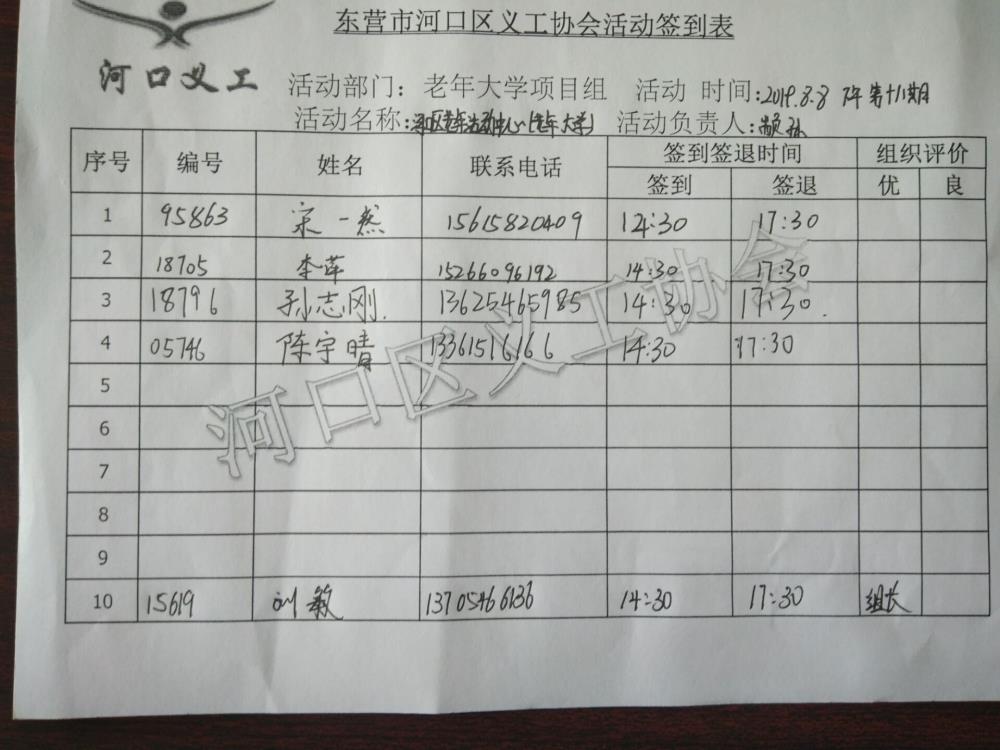 东营市河口区义工协会活动签到表
河口义工
活动部门: 老年大学项目组 活动 时间:2019.8.8 下午 第十八期
活动名称: 活动中心(老年大学) 活动负责人:
序号 编号 姓名 联系电话 签到签退时间 组织评价
签到 签退 优 良
1 95863 宋一然 15615820409 14:30 17:30
2 18705 李萍 15266096192 14:30 17:30
3 18796 孙志刚. 13625465985 14:30 17:30.
4 05746 陈宇晴 13361516166 14:30 17:30
5
6
7
8
9
10 15619 刘敏 13705466136 14:30 17:30 组长
河口区义工协会